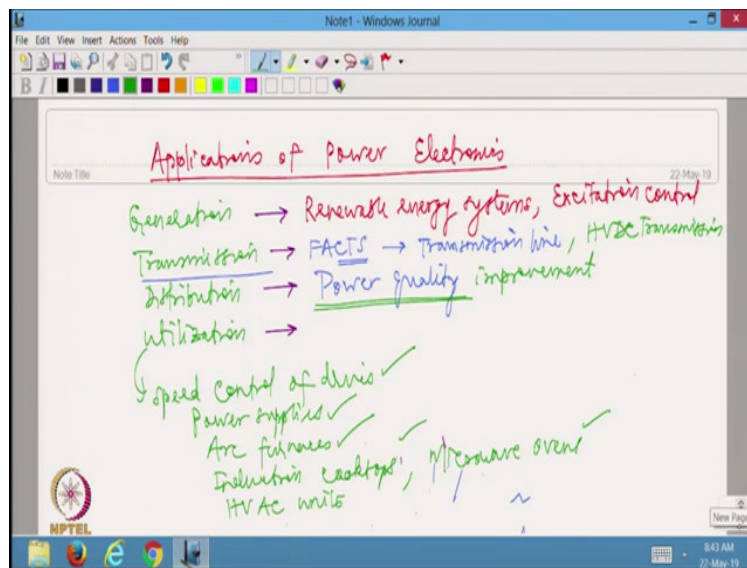 Note1 - Windows Journal
File Edit View Insert Actions Tools Help
B I
Applications of Power Electronics
Note Title
22-May-19
Generation → Renewable energy systems, Excitation control
Transmission → FACTS → Transmission line, HVDC Transmission
Distribution → Power quality improvement
Utilization →
speed control of drives ✓
Power supplies ✓
Arc furnaces ✓
Induction cooktops, Microwave ovens ✓
HVAC units
NPTEL
New Page
8:43 AM
22-May-19